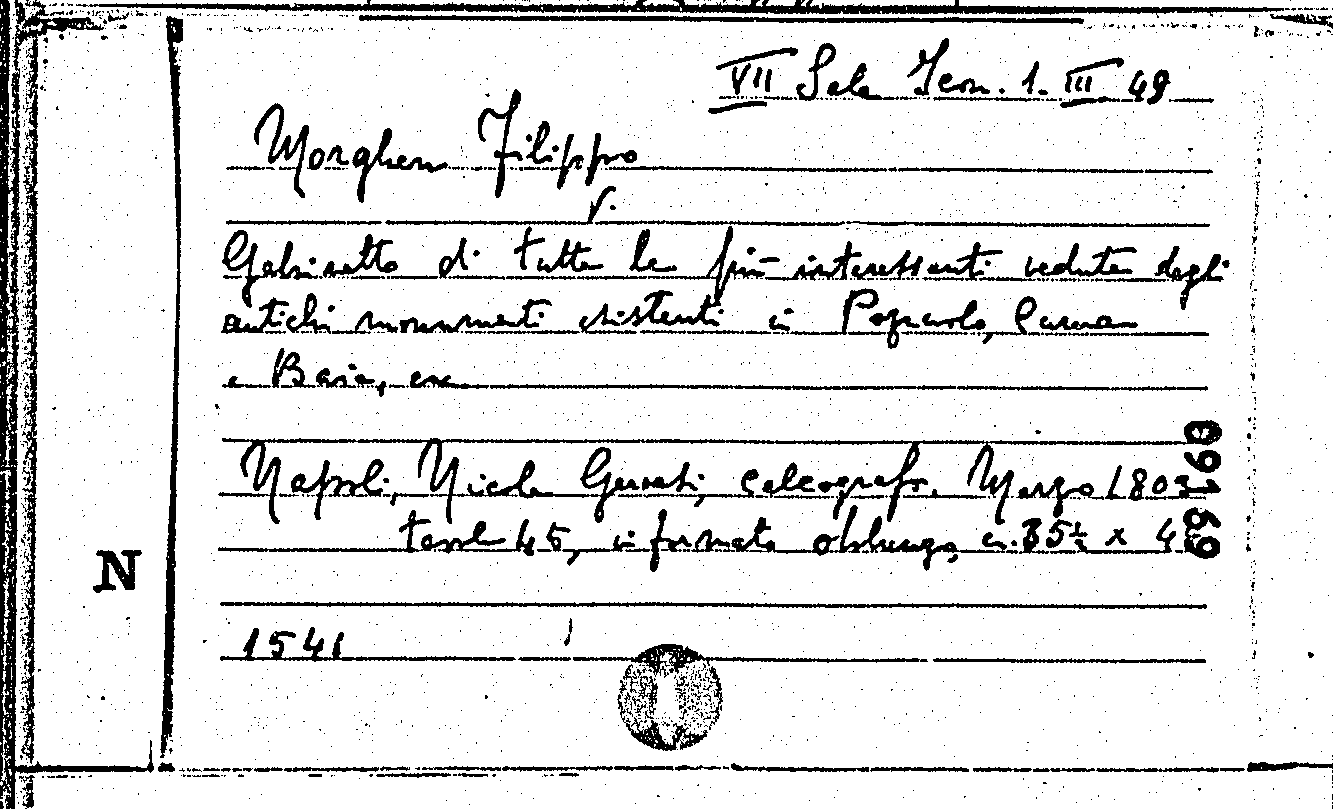 VII Sala Scan. 1. III 49
Morghen Filippo
v.
Gabinetto di tutte le più interessanti vedute degli
antichi monumenti esistenti in Pozzuolo, Cuma
e Baia, ecc.
Napoli, Nicola Gervasi, calcografo. Marzo 1803
tavole 45, in formato oblungo, cm. 35½ x 4
099169
N
1541